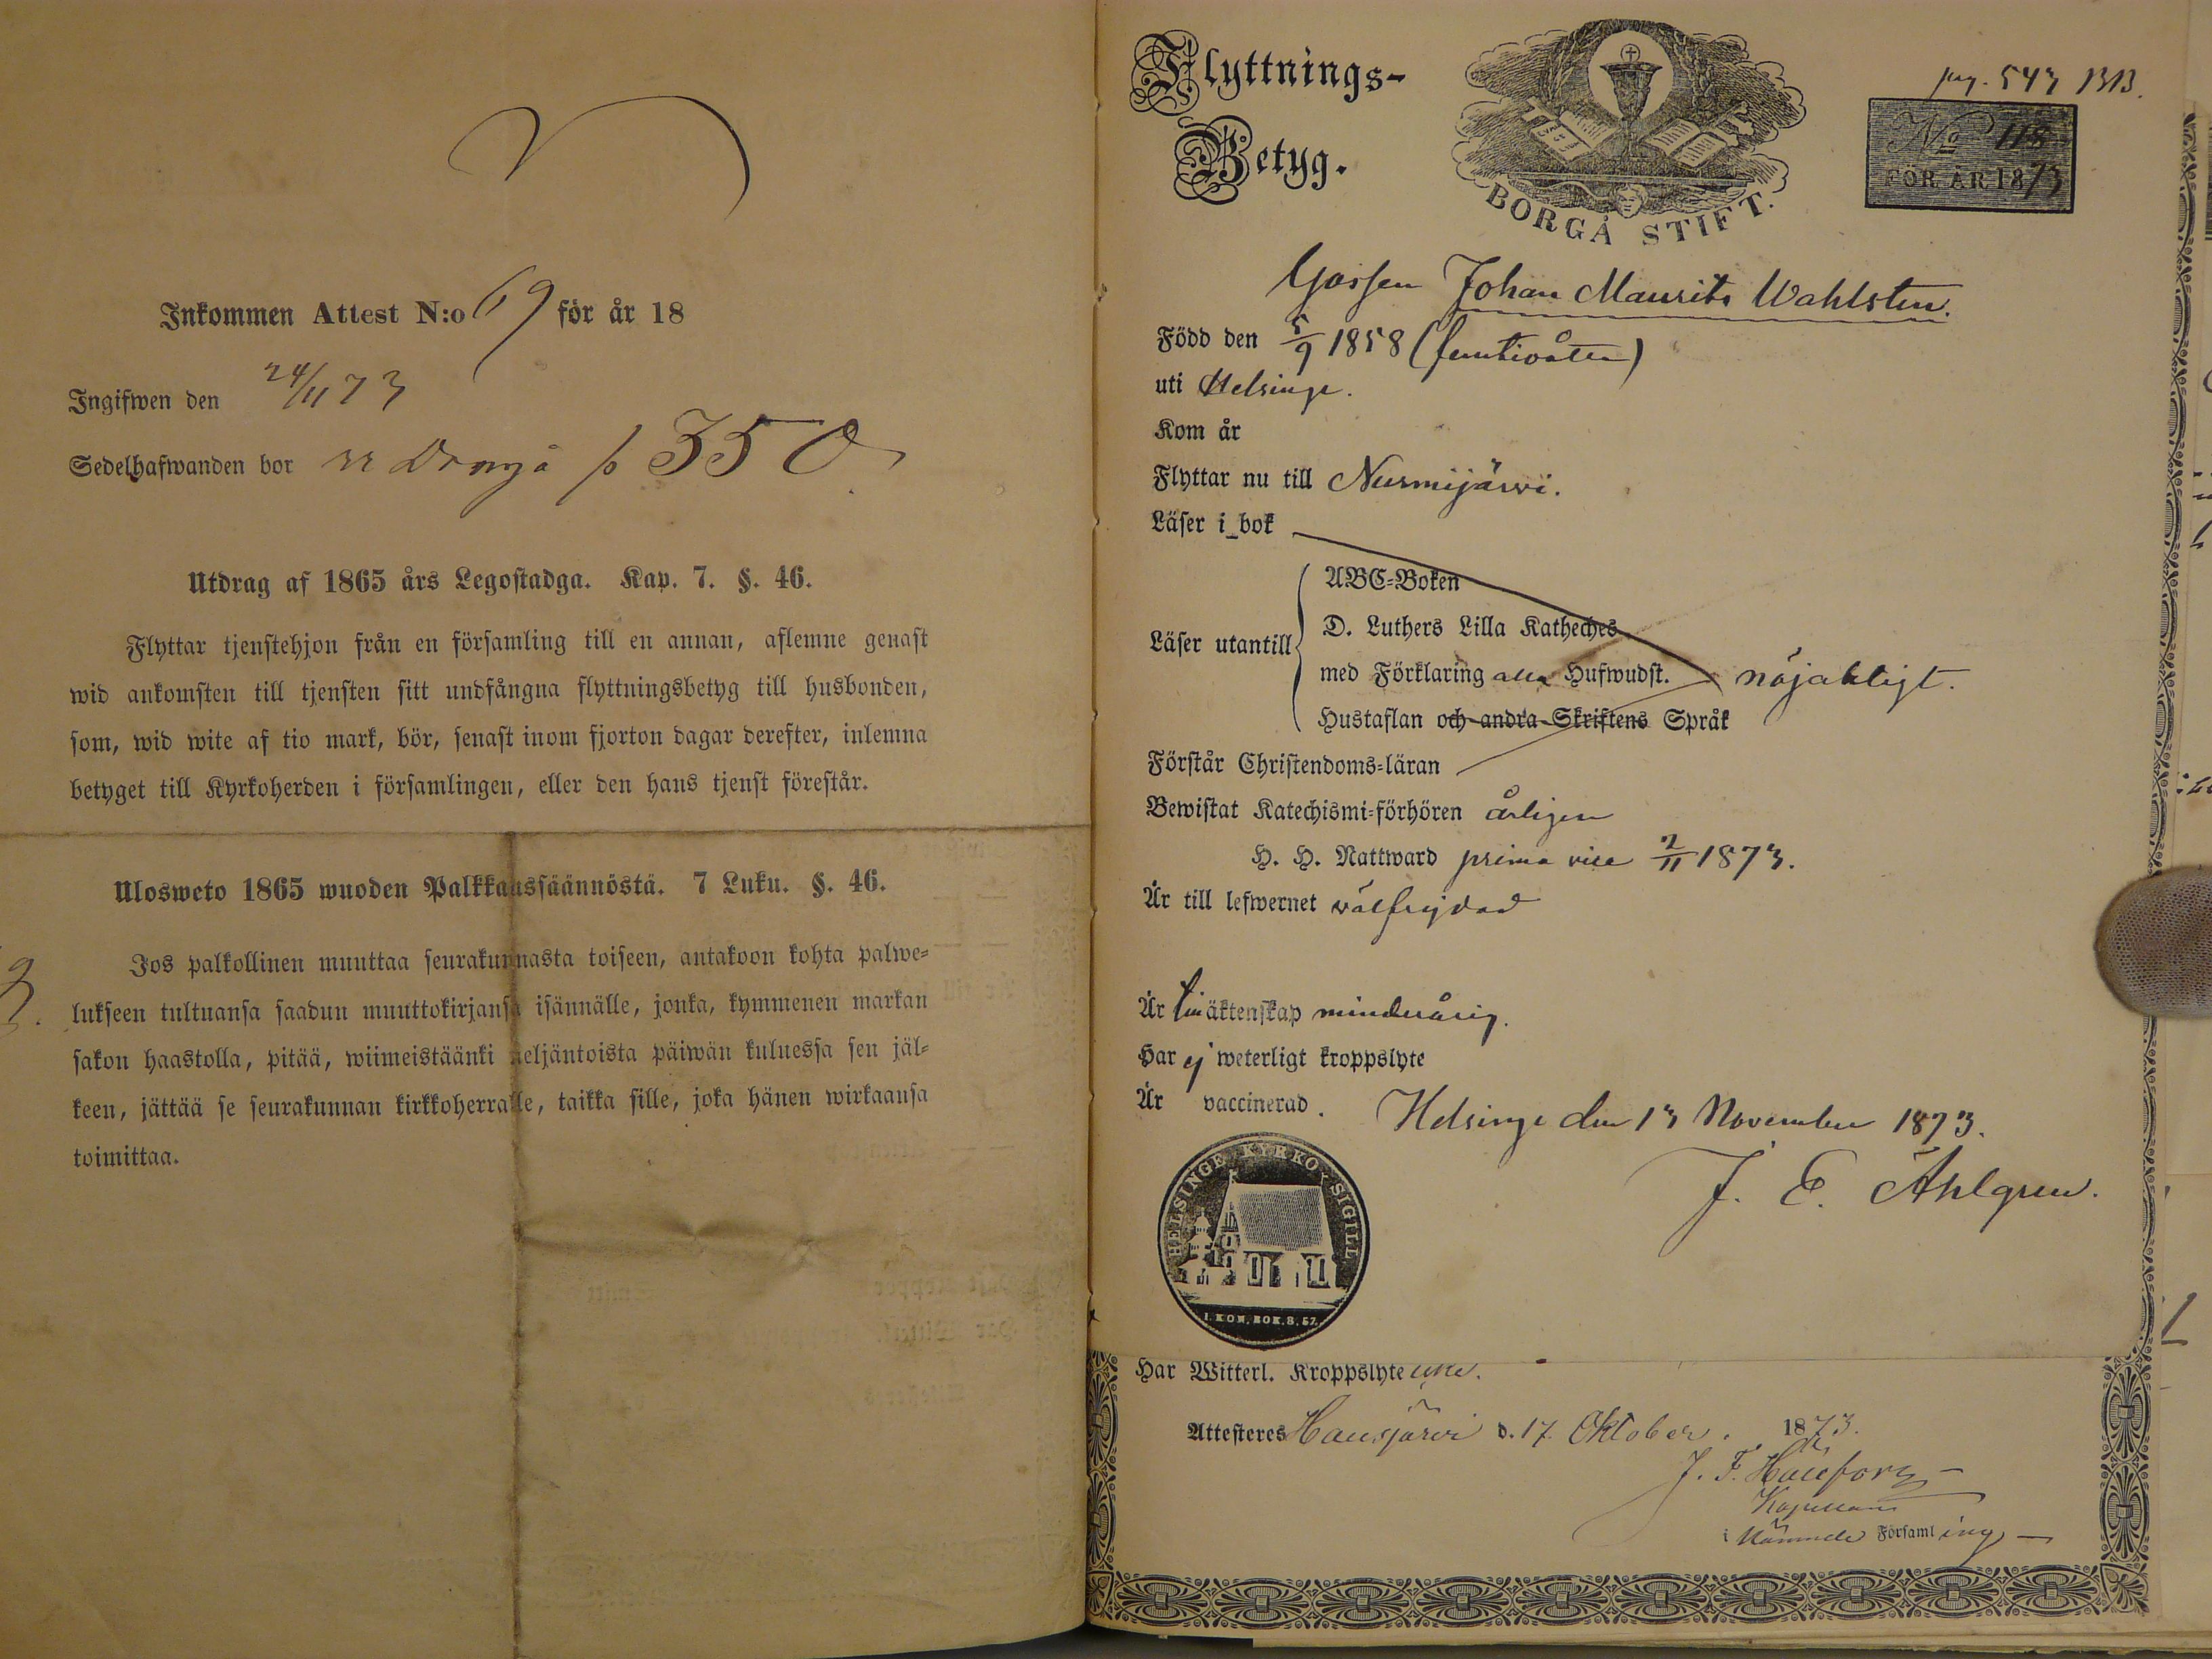 Inkommen Attest N:o 69 för år 18
Ingifwen den 24/11 73
Sedelhafwanden bor
350
Utdrag af 1865 års Legostadga. Kap. 7. §. 46.
Flyttar tjenstehjon från en församling till en annan, aflemne genast
wid ankomsten till tjensten sitt undfångna flyttningsbetyg till husbonden,
som, wid wite af tio mark, bör, senast inom fjorton dagar derefter, inlemna
betyget till Kyrkoherden i församlingen, eller den hans tjenst förestår.
Ulosweto 1865 wuoden Palkkaussäännöstä. 7 Luku. §. 46.
Jos palkollinen muuttaa seurakunnasta toiseen, antakoon kohta palwe-
lukseen tultuansa saadun muuttokirjansa isännälle, jonka, kymmenen markan
sakon haastolla, pitää, wiimeistäänki neljäntoista päiwän kuluessa sen jäl-
keen, jättää se seurakunnan kirkkoherralle, taikka sille, joka hänen wirkaansa
toimittaa.
Flyttnings-
Betyg.
BORGÅ STIFT.
pag. 543
No 118
FÖR ÅR 1873
Gossen Johan Maurits Wahlsten.
Född den 5/9 1858 (femtioåtta)
uti Helsinge.
Kom år
Flyttar nu till Nurmijärvi.
Läser i bok
ABC-Boken
D. Luthers Lilla Katheches
Läser utantill
med Förklaring alla Hufwudst. nöjaktigt.
Hustaflan och andra Skriftens Språk
Förstår Christendoms-läran
Bewistat Katechismi-förhören årligen
H. H. Nattward prima vice 2/11 1873.
Är till lefwernet välfrejdad
Är till äktenskap minderårig.
Har ej weterligt kroppslyte
Är vaccinerad.
Helsinge den 13 November 1873.
J. E. Åhlgren.
HELSINGE KYRKO SIGILL
I. KON. BOK. 8. 57.
Har Witterl. Kroppslyte icke.
Attesteres Hausjärvi d. 17 Oktober. 1873.
J. F.
Kapellan
i Nämnde Församling